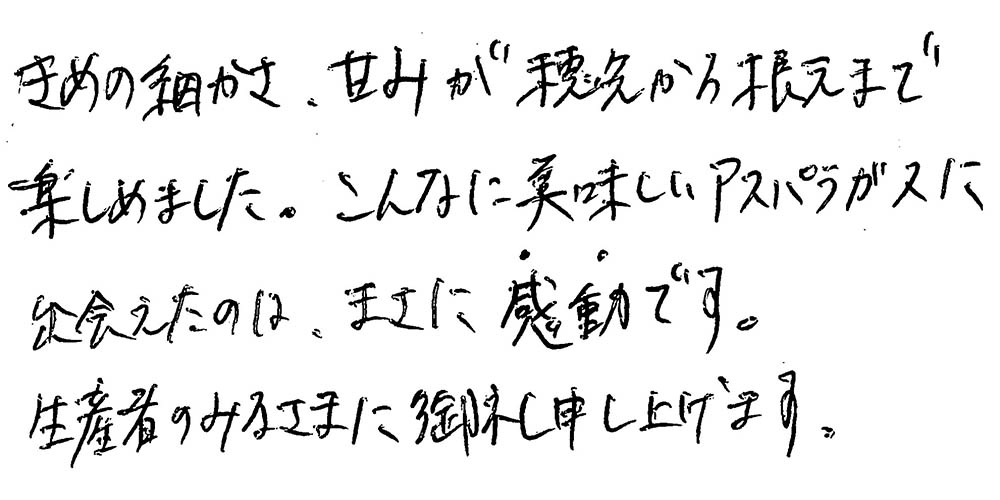 きめの細かさ、甘みが穂先から根元まで
楽しめました。こんなに美味しいアスパラガスに
出会えたのは、まさに感動です。
生産者のみなさまに御礼申し上げます。